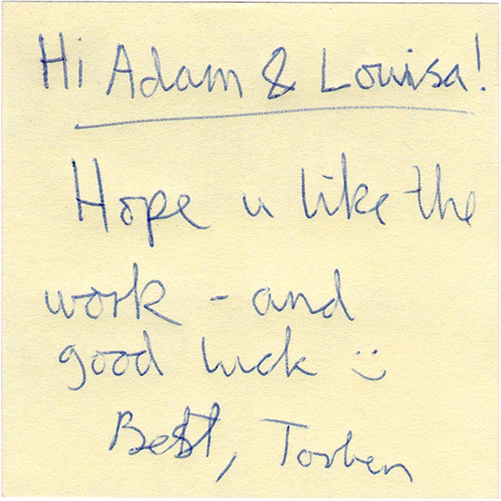 Hi Adam & Louisa!
Hope u like the
work - and
good luck :)
Best, Torben